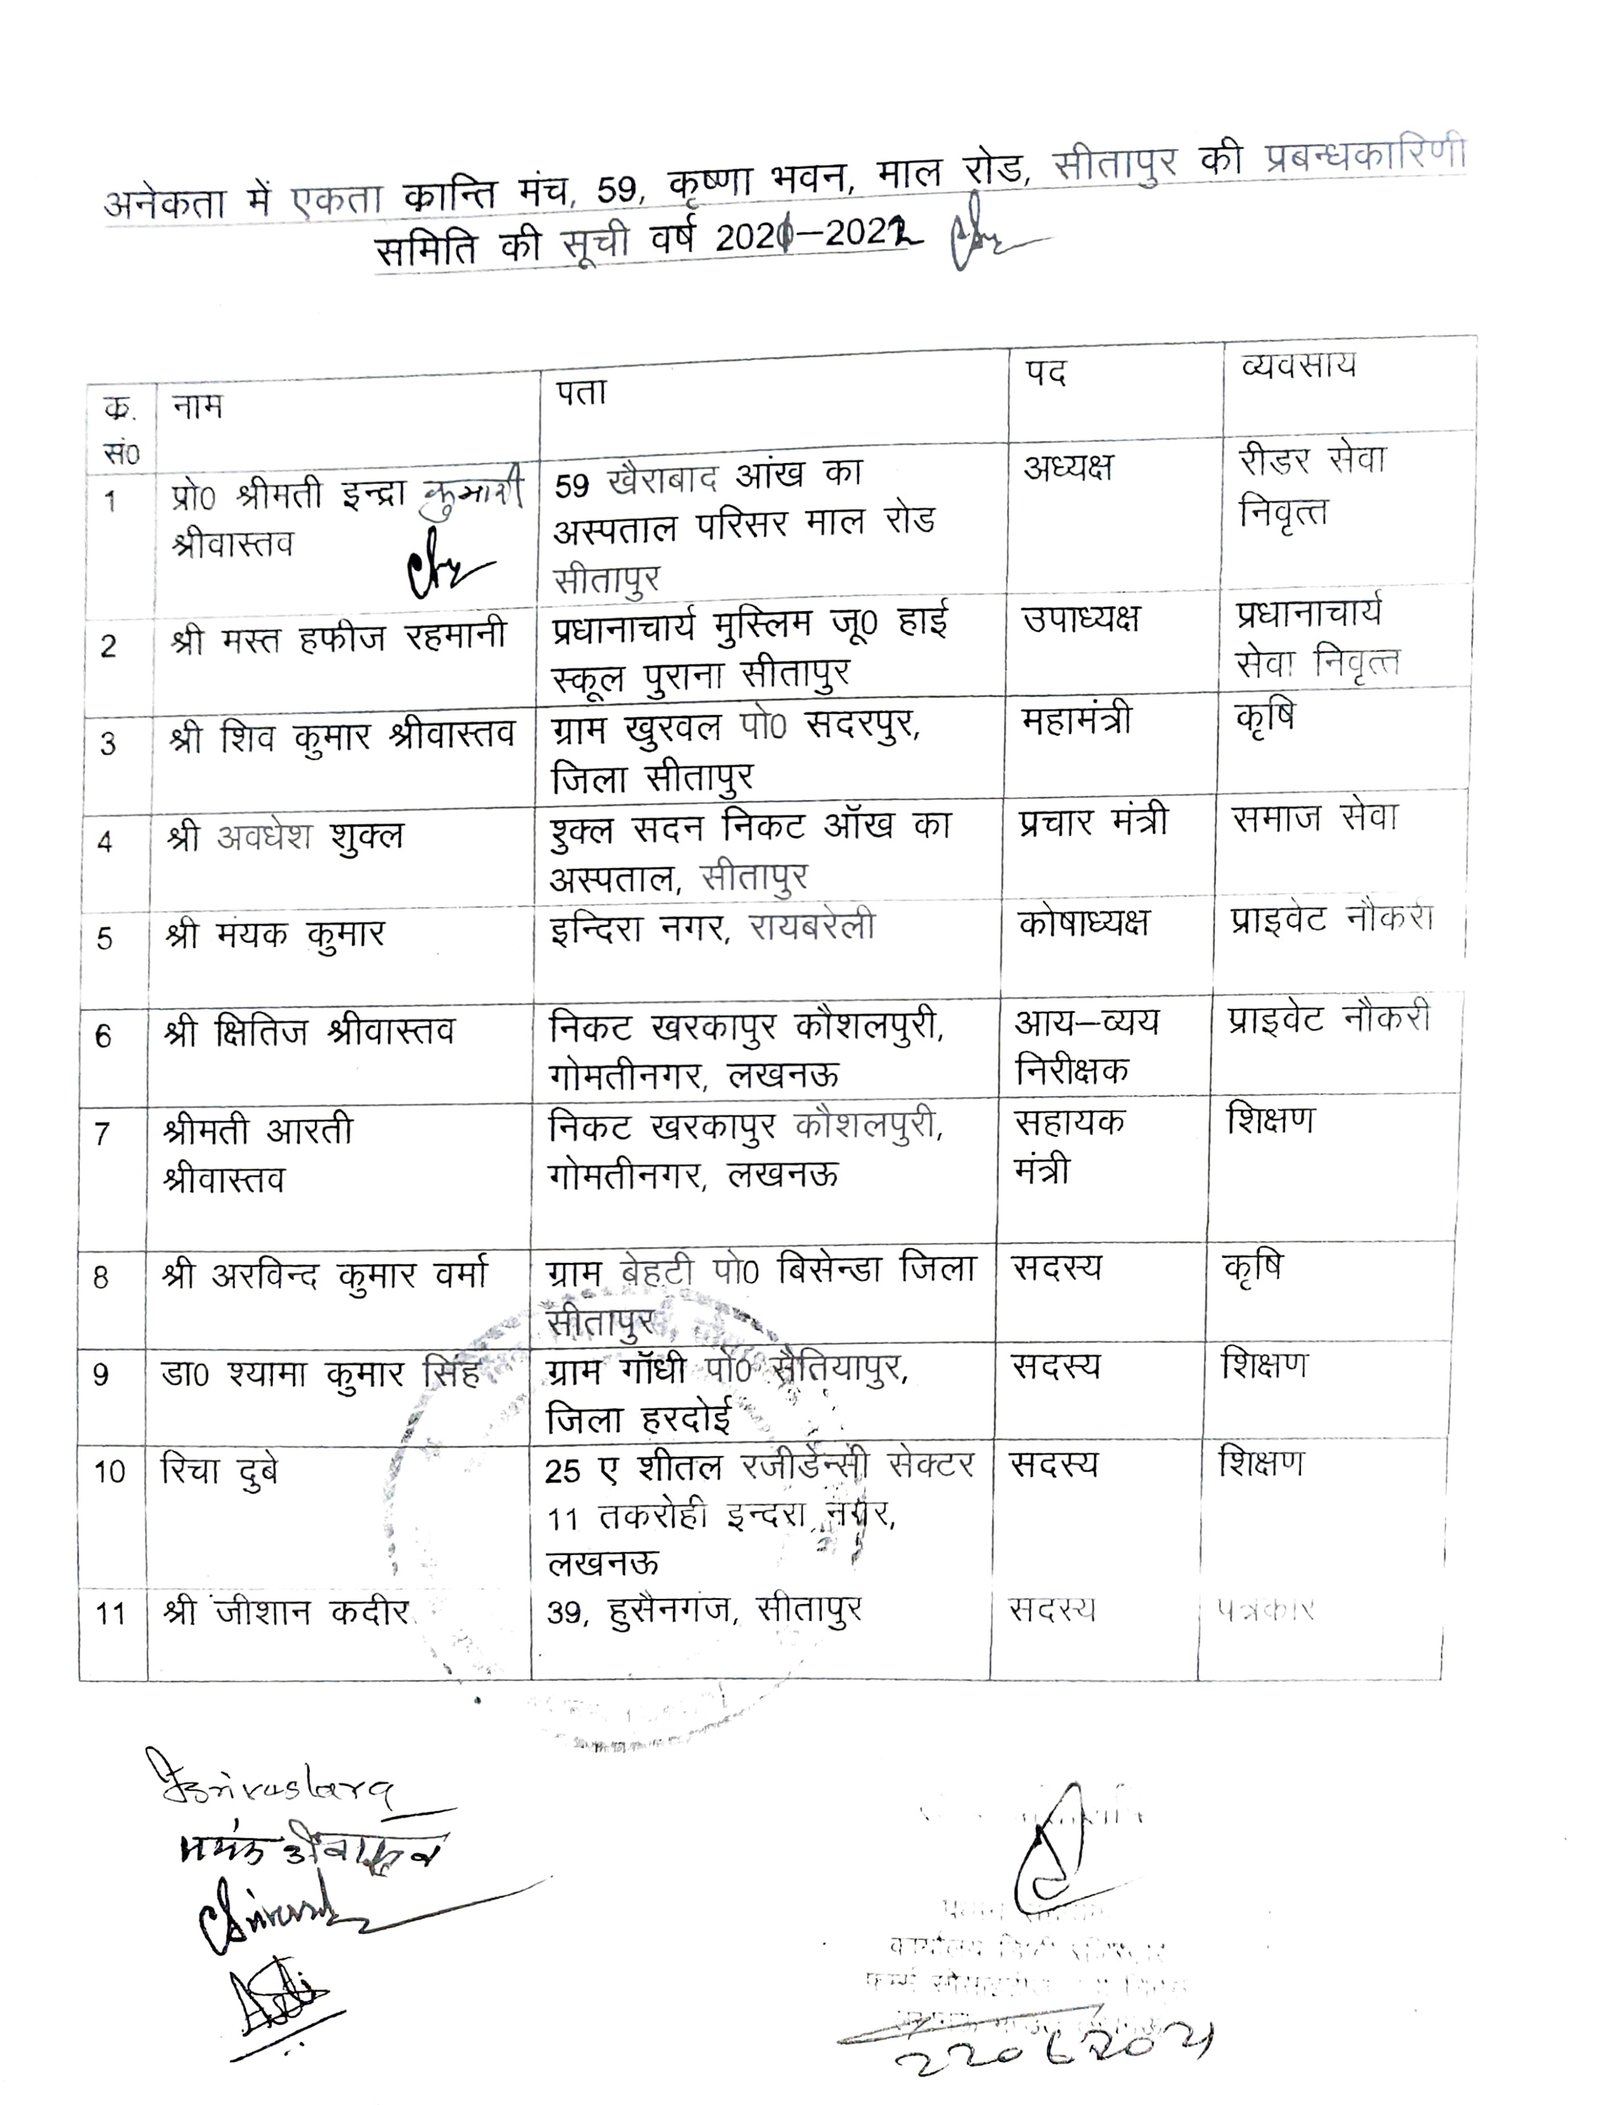 अनेकता में एकता कान्ति मंच, 59, कृष्णा भवन, माल रोड, सीतापुर की प्रबन्धकारिणी
समिति की सूची वर्ष 2021–2022
क. नाम पता पद व्यवसाय
सं0
1 प्रो0 श्रीमती इन्द्रा कुमारी 59 खैराबाद आंख का अध्यक्ष रीडर सेवा
श्रीवास्तव अस्पताल परिसर माल रोड निवृत्त
सीतापुर
2 श्री मस्त हफीज रहमानी प्रधानाचार्य मुस्लिम जू0 हाई उपाध्यक्ष प्रधानाचार्य
स्कूल पुराना सीतापुर सेवा निवृत्त
3 श्री शिव कुमार श्रीवास्तव ग्राम खुरवल पो0 सदरपुर, महामंत्री कृषि
जिला सीतापुर
4 श्री अवधेश शुक्ल शुक्ल सदन निकट ऑख का प्रचार मंत्री समाज सेवा
अस्पताल, सीतापुर
5 श्री मंयक कुमार इन्दिरा नगर, रायबरेली कोषाध्यक्ष प्राइवेट नौकरी
6 श्री क्षितिज श्रीवास्तव निकट खरकापुर कौशलपुरी, आय–व्यय प्राइवेट नौकरी
गोमतीनगर, लखनऊ निरीक्षक
7 श्रीमती आरती निकट खरकापुर कौशलपुरी, सहायक शिक्षण
श्रीवास्तव गोमतीनगर, लखनऊ मंत्री
8 श्री अरविन्द कुमार वर्मा ग्राम बेहटी पो0 बिसेन्डा जिला सदस्य कृषि
सीतापुर
9 डा0 श्यामा कुमार सिंह ग्राम गॉधी पो0 सैतियापुर, सदस्य शिक्षण
जिला हरदोई
10 रिचा दुबे 25 ए शीतल रजीडेन्सी सेक्टर सदस्य शिक्षण
11 तकरोही इन्दरा नगर,
लखनऊ
11 श्री जीशान कदीर 39, हुसैनगंज, सीतापुर सदस्य पत्रकार
Srivastava
मयंक श्रीवास्तव